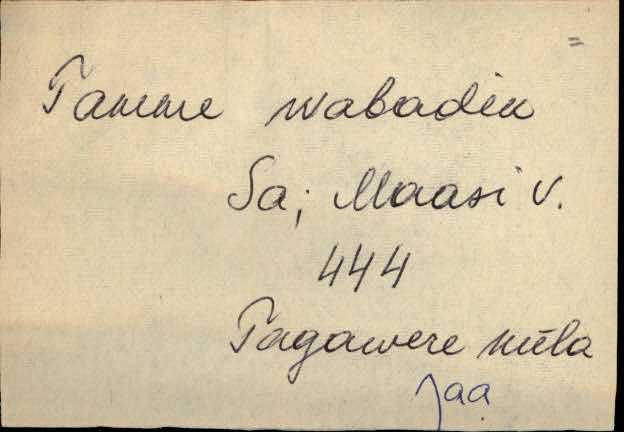 =
Tamme wabadik
Sa; Maasi v.
444
Tagawere küla
Jaa